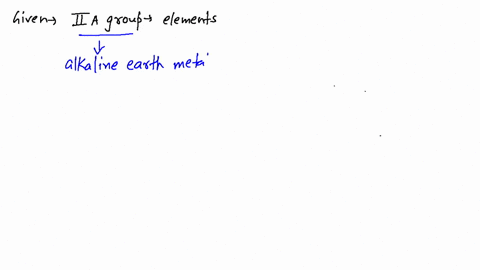 Given → II A group → elements
↓
alkaline earth meta